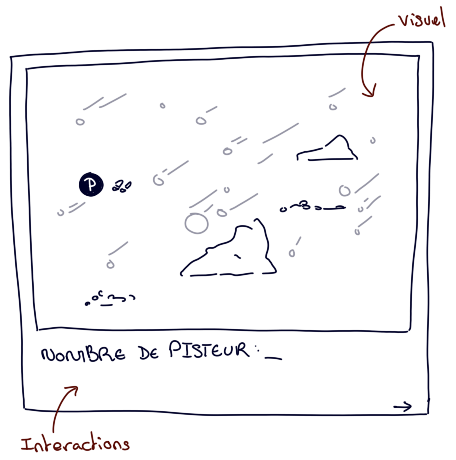 Visuel
P
NOMBRE DE PISTEUR : _
Interactions